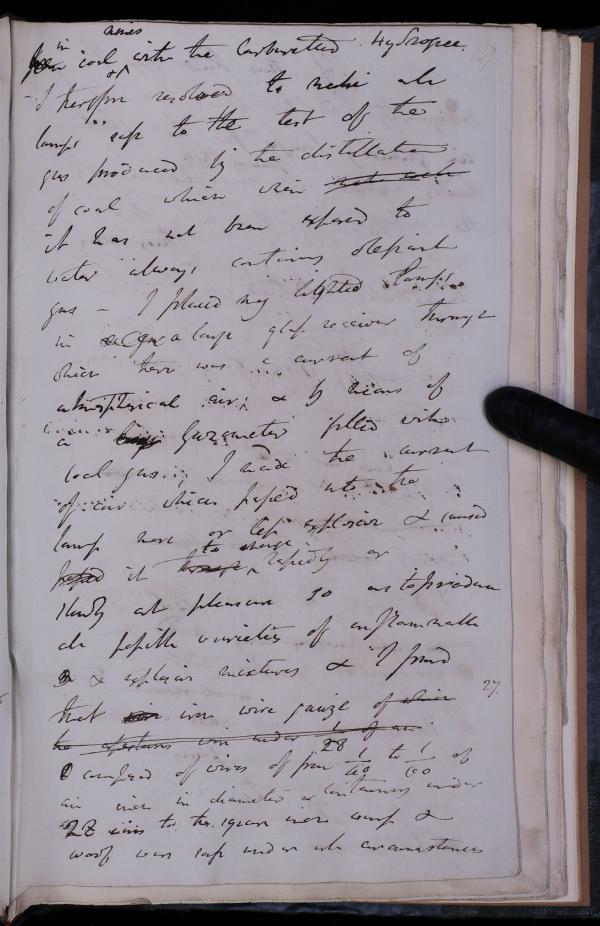 in mines
coal with the Carburetted Hydrogen. 127.
- I therefore resolved to make all
lamps safe to the test of the
gas produced by the distillation
of coal which when not such
it has not been exposed to
water always contains olefiant
gas - I placed my lighted lamps
in a large glass receiver through
which there was a current of
atmospherical air, & by means of
a large gazometer filled with
coal gas, I made the current
of air which passed into the
lamp more or less explosive & caused
it to change rapidly or
slowly at pleasure so as to produce
all possible varieties of inflammable
& explosive mixtures & I found
that iron wire gauze of which 27.
the apertures were under 1/28 of an
composed of wires of from 1/40 to 1/60 of
an inch in diameter & containing under
28 wires to the square inch warp &
woof was safe under all circumstances